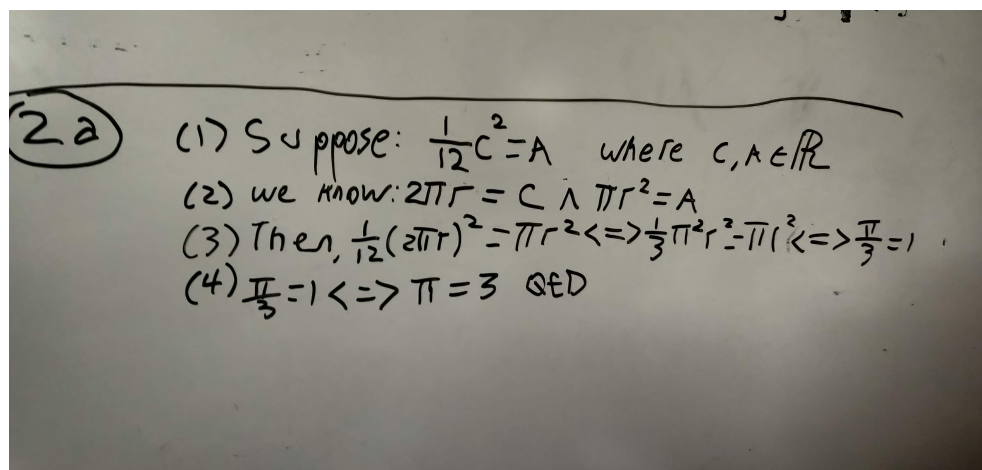 2a (1) Suppose: 1/12 C² = A where C, A ∈ ℝ
(2) we know: 2πr = C ∧ πr² = A
(3) Then, 1/12 (2πr)² = πr² <=> 1/3 π²r² = πr² <=> π/3 = 1
(4) π/3 = 1 <=> π = 3 QED